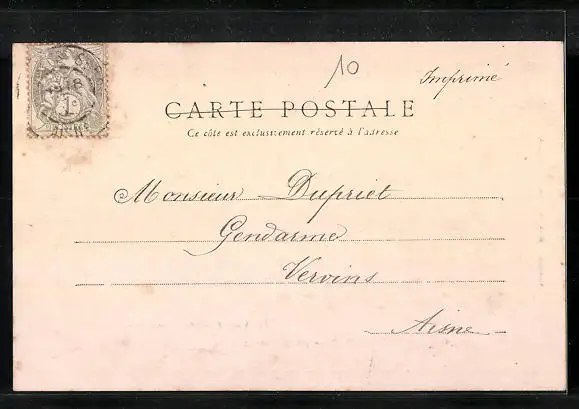 10
Imprimé
1c
CARTE POSTALE
Ce côté est exclusivement réservé à l'adresse
Monsieur Dupriet
Gendarme
Vervins
Aisne